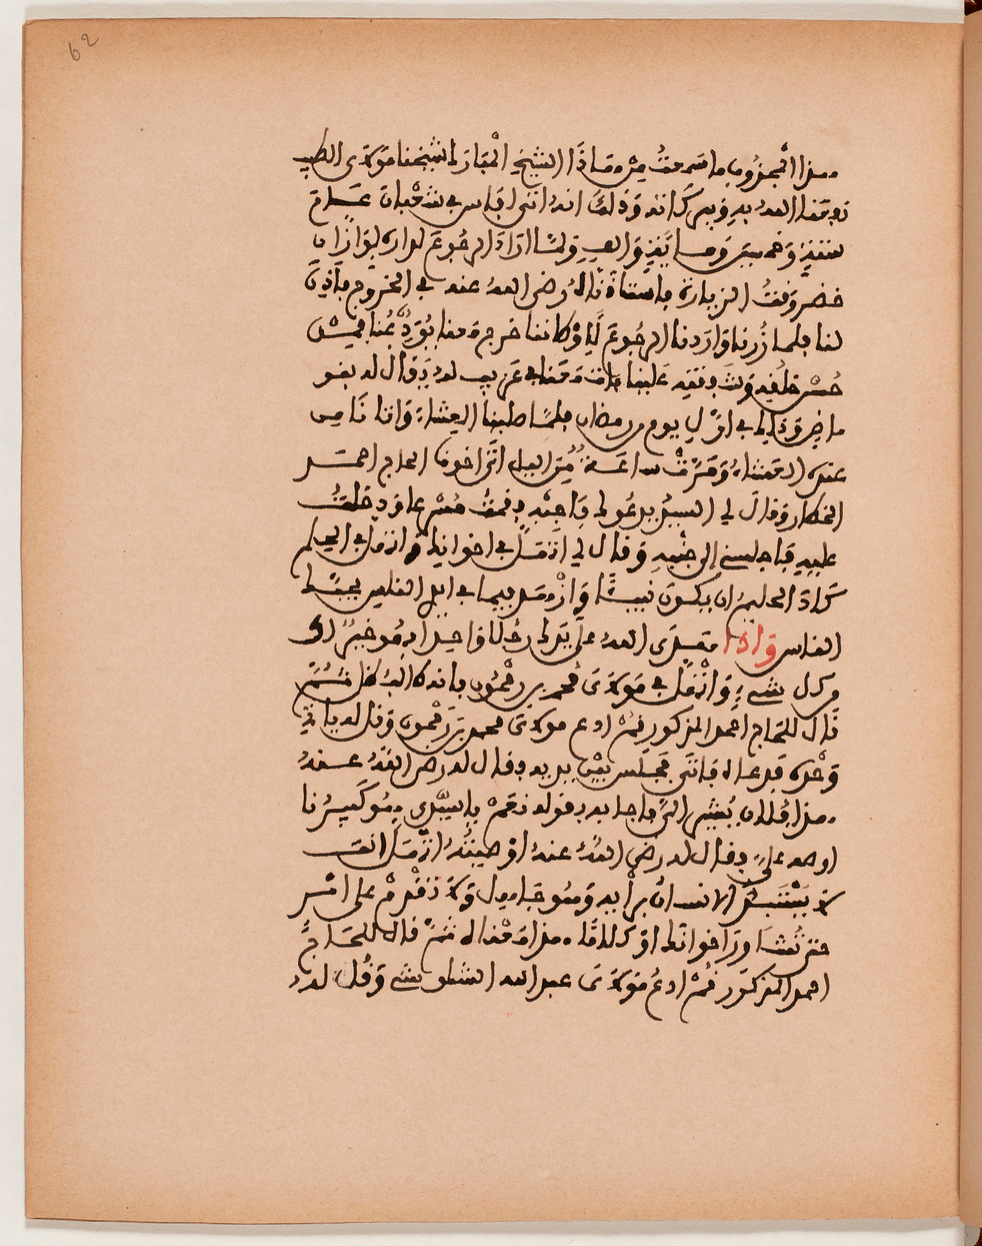 62
هذا المجذوب ما سمعت من هذا الشيخ المبارك شيخنا مولاي الطيب
نفعنا الله به وببركاته وذلك انه اتى لفاس في شعبان عام
ستة وخمسين وماية والف ولما اراد الرجوع لداره بوازان
حضر وقت الزيارة فاستاذناه رضي الله عنه في الخروج فأذن
لنا فلما زرنا واردنا الرجوع خرج معنا يودعنا من
حسن خلفه وشفقته علينا
ماض وذلك في اول يوم من رمضان فلما صلينا العشاء وانا نايم
عنده العشاء ومرت ساعة من اليل اتى اخونا الحاج احمد
الخطار وقال لي السيد يدعوك فاجبه فقمت مسرعا ودخلت
عليه فاجلسني الى جنبه وقال لي اتهل في اخوانك وازمل في الحلم
كاد الحليم ان يكون نبيا وازهد فيما في ايدي الناس يحبك
الناس واذا هدى الله على يدك رجلا واحدا فهو خير لك
من كل شيء واتهل في مولاي محمد بن رحمون فانه كالبه ثم
قال للحاج احمد المذكور قم ادع مولاي محمد بن رحمون وقل له ياتي
وحده فدعاه فاتى فجلس بين يديه فقال له رضي الله عنه
هذا فلان يشير الي فاجابه بقوله نعم يا سيدي هو كبيرنا
اوصه علي فقال له رضي الله عنه اوصيته اتهل انت
لا يستبد الانسان برأيه وهو جاهل ولا تقدم على امر
حتى تشاور اخوانك او كلاما هذا معناه ثم قال للحاج
احمد المذكور قم ادع مولاي عبد الله الشلوشي وقل له